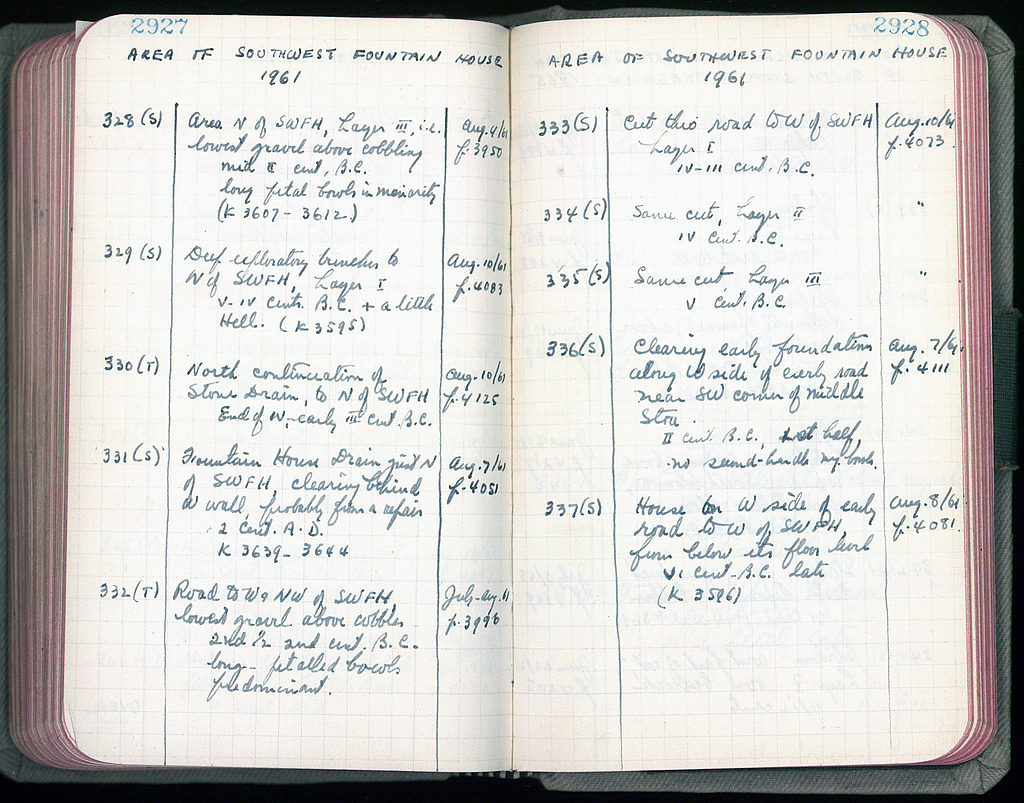 2927
AREA OF SOUTHWEST FOUNTAIN HOUSE
1961
328 (S) Area N of SWFH, Layer III, i.e. Aug. 9/61
lowest gravel above cobbling p. 3950
mid II cent. B.C.
long petal bowls in minority
(K 3607 - 3612)
329 (S) Deep exploratory trenches to Aug. 10/61
N of SWFH, Layer I p. 4083
V-IV cents. B.C. + a little
Hell. (K 3595)
330 (T) North continuation of Aug. 10/61
Stone Drain, to N of SWFH p. 4125
End of IV-early III cent. B.C.
331 (S) Fountain House Drain just N Aug. 7/61
of SWFH, clearing behind p. 4051
a wall, probably from a repair
2 cent. A.D.
K 3639 - 3644
332 (T) Road to W & NW of SWFH, July-Aug. 61
lowest gravel above cobbles p. 3996
2nd 1/2 2nd cent. B.C.
long-petalled bowls
predominant.
2928
AREA OF SOUTHWEST FOUNTAIN HOUSE
1961
333 (S) Cut thro road to W of SWFH Aug. 10/61
Layer I p. 4073
IV-III cent. B.C.
334 (S) Same cut, Layer II "
IV cent. B.C.
335 (S) Same cut, Layer III "
V cent. B.C.
336 (S) Clearing early foundation Aug. 7/61
along W side of early road p. 4111
near SW corner of Middle
Stoa.
II cent. B.C., 1st half,
no second-handle my. bowls.
337 (S) House on W side of early Aug. 8/61
road to W of SWFH, p. 4081
from below its floor level
VI cent. B.C. late
(K 3596)